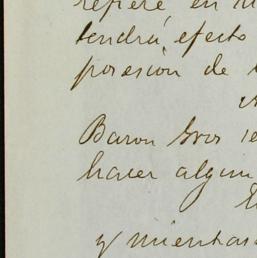 refiere en
tendrá efecto
posesion de
Baron Gros se
hacer algun
y mientras